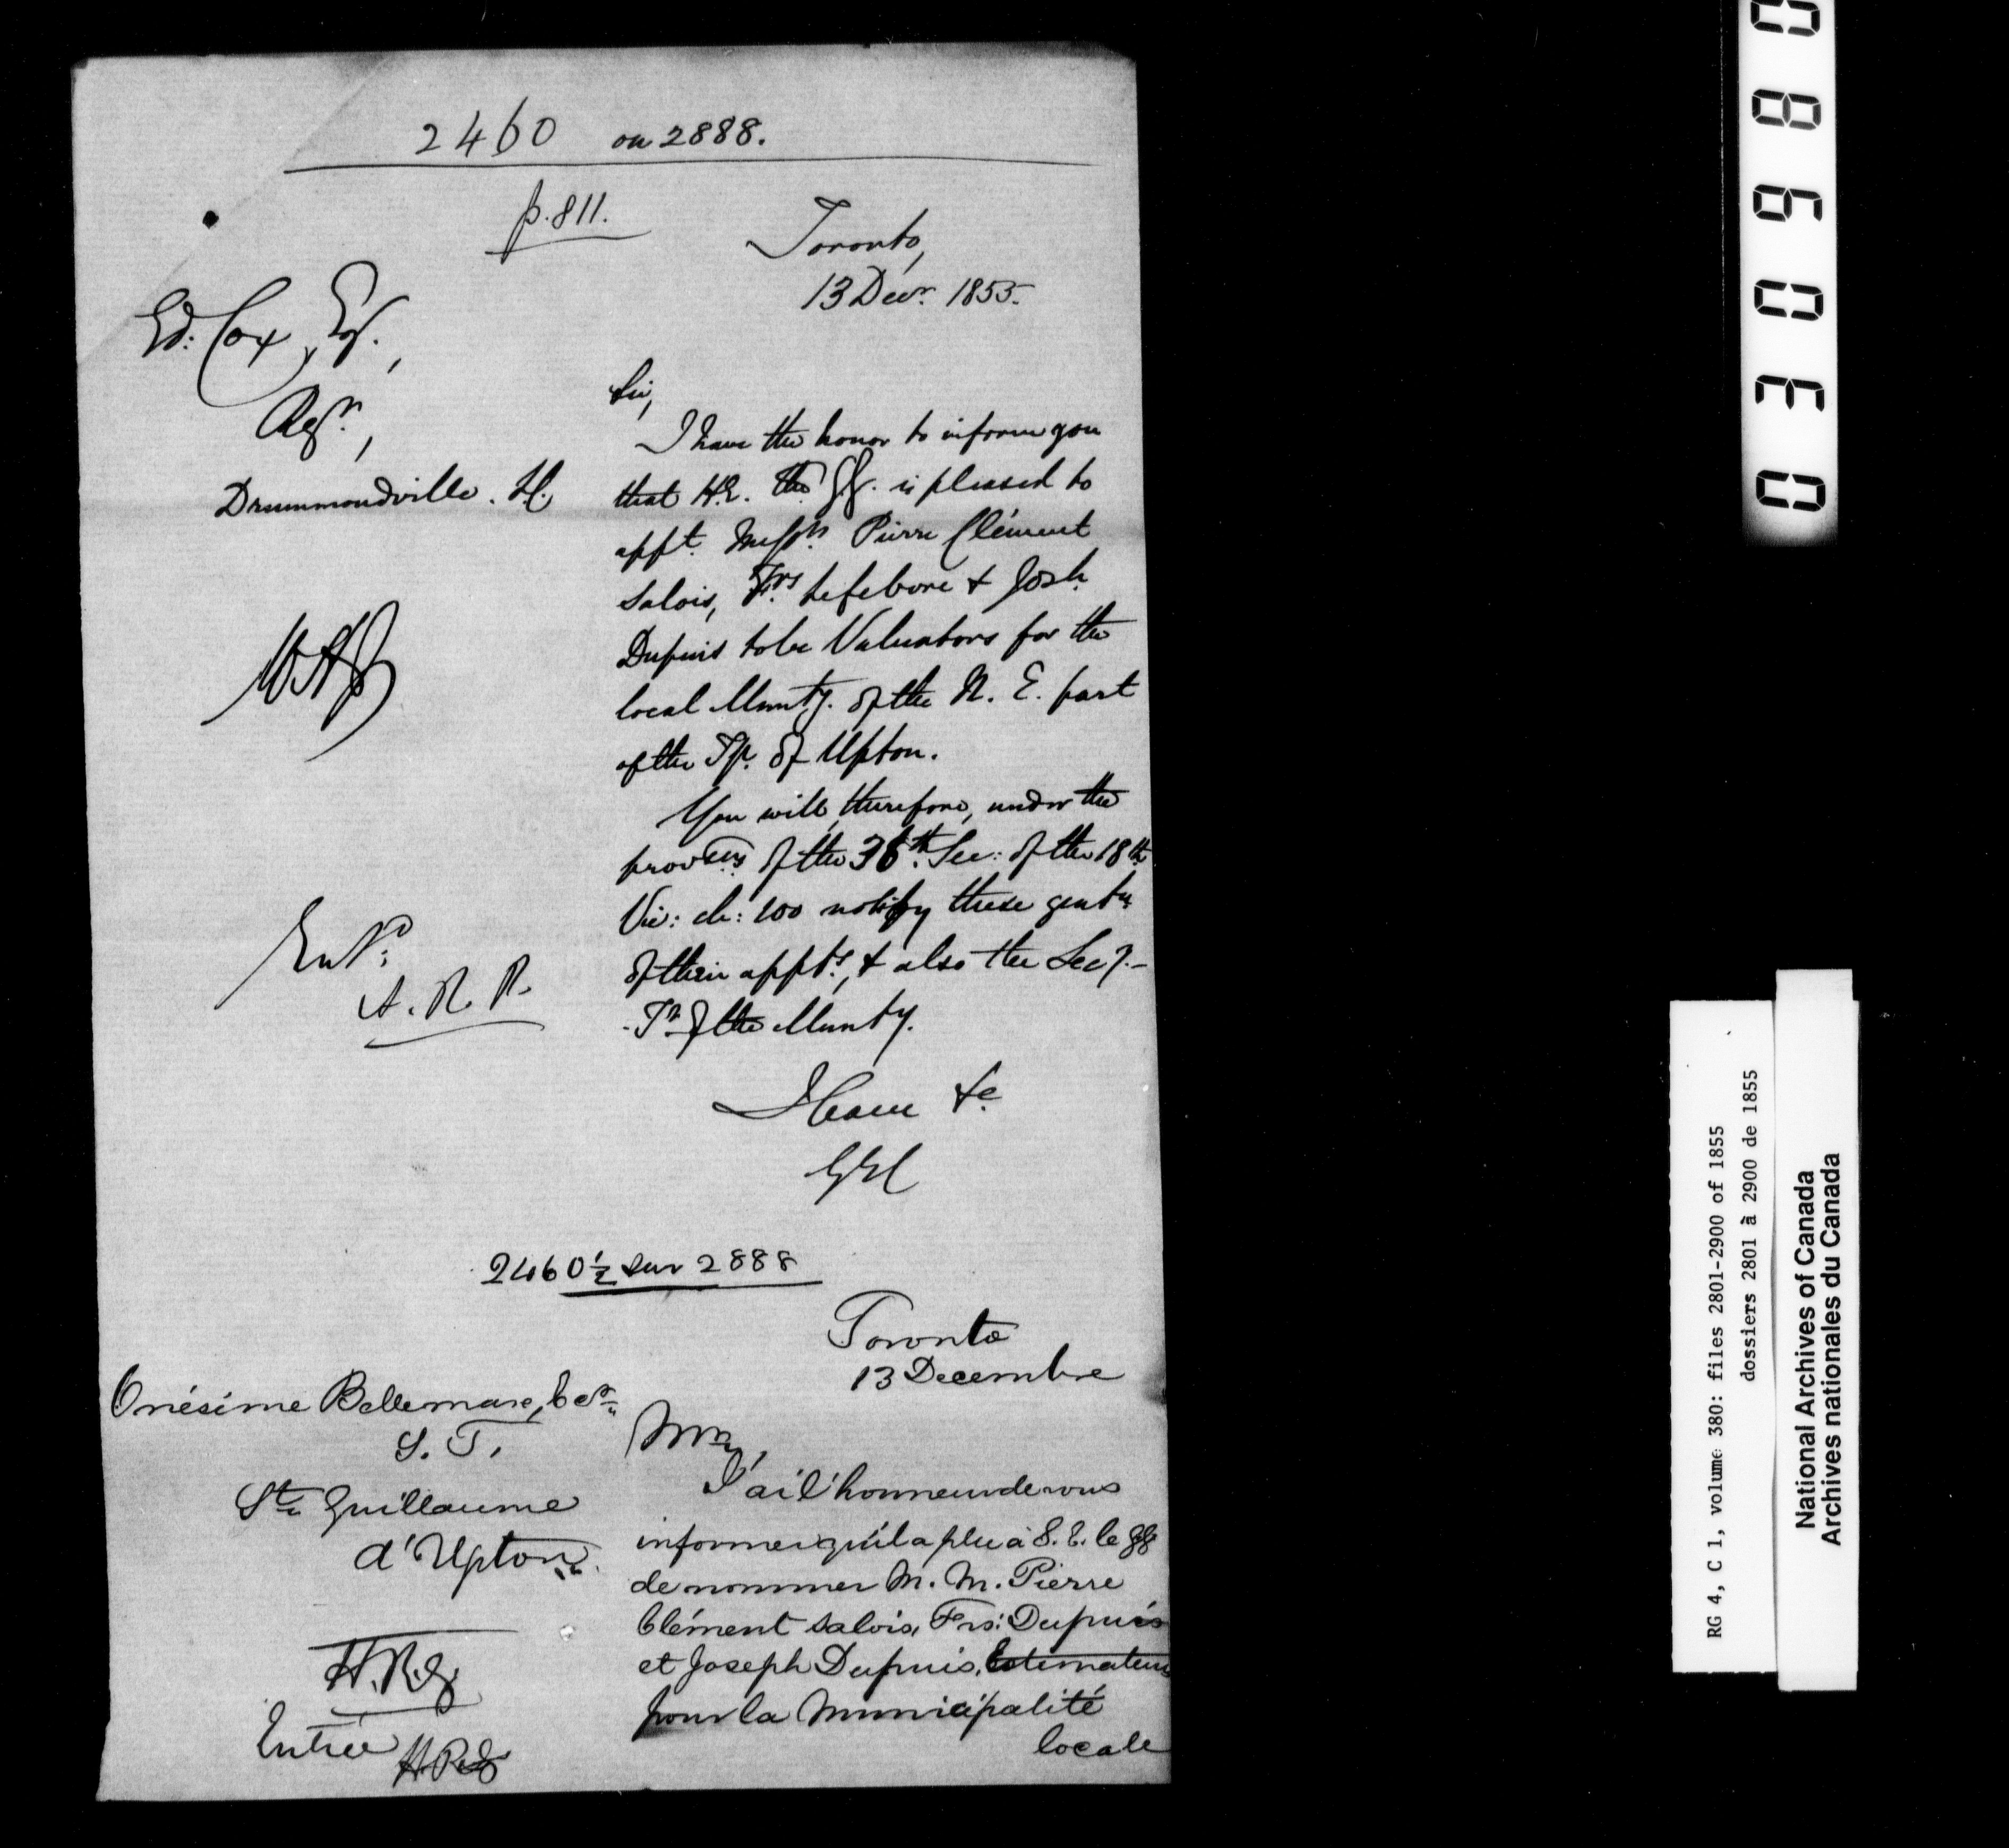 2460 on 2888.
p. 811.
Toronto,
13 Decr. 1855.
Ed: Cox, Esq.,
Regr.,
Drummondville.
Sir,
I have the honor to inform you
that H.E. the GG. is pleased to
appt. Messrs. Pierre Clément
Salois, Frs. Lefebvre & Josh.
Dupuis to be Valuators for the
local Munty. of the N. E. part
of the Tp. of Upton.
You will, therefore, under the
provons of the 36th. Sec: of the 18th
Vic: ch: 100 notify these gentn
of their appts., & also the Secy.-
-Tr. of the Munty.
Entd.
A. R. R.
I have &c
GEC
2460½ sur 2888
Toronto
13 Decembre
Onésime Bellemare, Ecr
S. T.
St. Guillaume
d'Upton.
Mr,
J'ai l'honneur de vous
informer qu'il a plu à S. E. le GG
de nommer M. M. Pierre
Clément Salois, Frs: Dupuis
et Joseph Dupuis, Estimateurs
pour la Municipalité
locale
Entrée
030980
RG 4, C 1, volume 380: files 2801-2900 of 1855
dossiers 2801 à 2900 de 1855
National Archives of Canada
Archives nationales du Canada